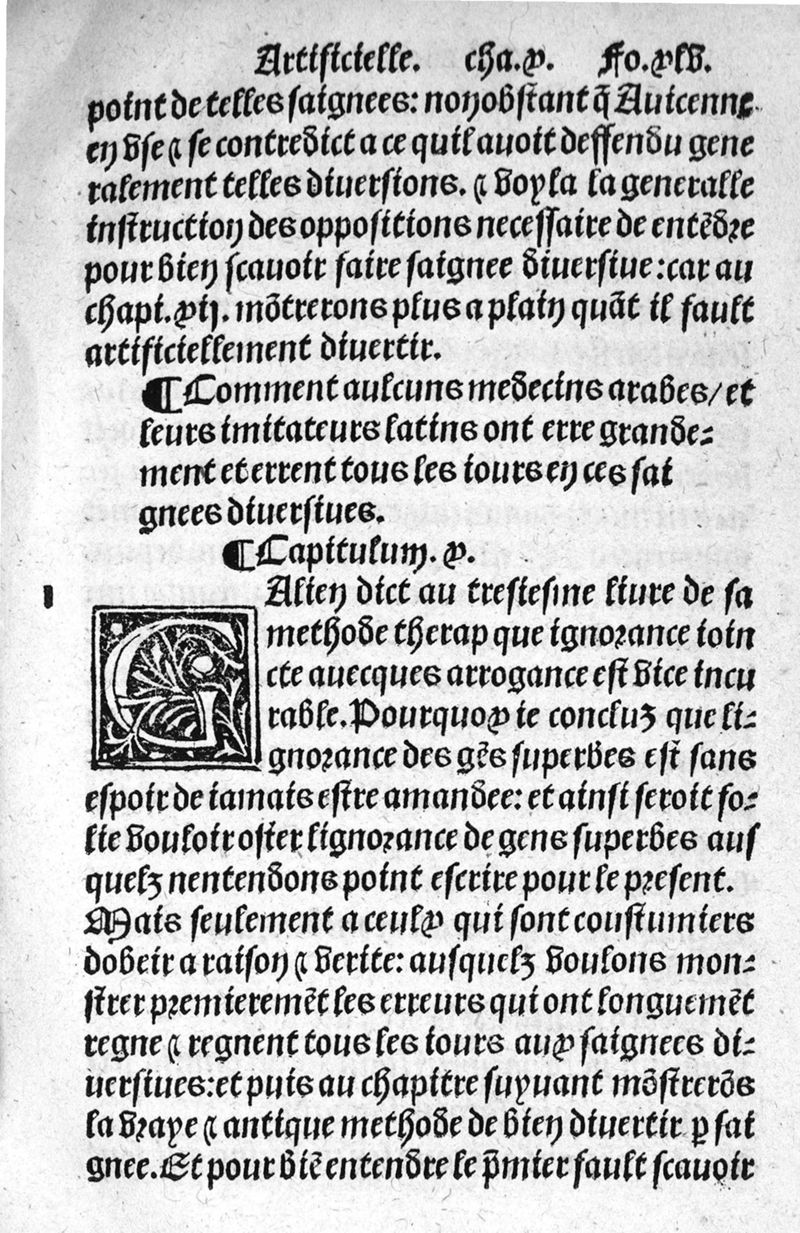 Artificielle. cha.x. Fo.xlv.
point de telles saignees: non obstant q̃ Auicenne
en vse ⁊ se contredict a ce quil auoit deffendu gene
ralement telles diuersions. ⁊ voyla la generalle
instruction des oppositions necessaire de entẽdre
pour bien scauoir faire saignee diuersiue: car au
chapi.xij. mõtrerons plus a plain quãt il fault
artificiellement diuertir.
¶Comment aulcuns medecins arabes/ et
leurs imitateurs latins ont erre grande⸗
ment et errent tous les iours en ces sai
gnees diuersiues.
¶Capitulum. x.
1 GAlien dict au tresiesme liure de sa
methode therap que ignorance ioin
cte auecques arrogance est vice incu
rable. Pourquoy ie concluz que li⸗
gnorance des gẽs superbes est sans
espoir de iamais estre amandee: et ainsi seroit fo⸗
lie vouloir oster lignorance de gens superbes aus
quelz nentendons point escrire pour le present.
Mais seulement a ceulx qui sont coustumiers
dobeir a raison ⁊ verite: ausquelz voulons mon⸗
strer premieremẽt les erreurs qui ont longuemẽt
regne ⁊ regnent tous les iours aux saignees di⸗
uersiues: et puis au chapitre suyuant mõstrerõs
la vraye ⁊ antique methode de bien diuertir ꝑ sai
gnee. Et pour biẽ entendre le p̃mier fault scauoir